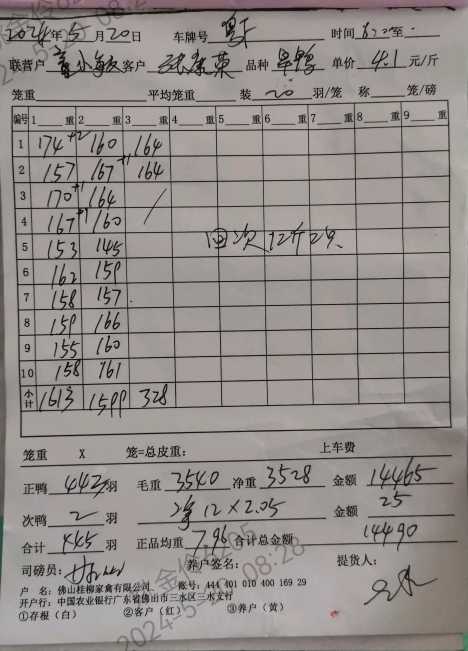 2024年5月20日 车牌号 时间
联营户 客户 品种 旱鸭 单价 4.1 元/斤
笼重 平均笼重 装 20 羽/笼 称 笼/磅
编号 1 重 2 重 3 重 4 重 5 重 6 重 7 重 8 重 9 重
1 174 +2 160 164
2 157 167 +1 164
3 170 +1 164 /
4 167 +1 160
5 153 145 回次 12斤2只
6 162 159
7 158 157
8 159 166
9 155 160
10 158 161
小计 1613 1599 328
笼重 X 笼=总皮重: 上车费
正鸭 443 羽 毛重 3540 净重 3528 金额 14465
次鸭 2 羽 12 × 2.05 金额 25
合计 445 羽 正品均重 7.96 合计总金额 14490
司磅员: 养户签名: 提货人:
户 名: 佛山桂柳家禽有限公司 账号: 444 401 010 400 169 29
开户行: 中国农业银行广东省佛山市三水区三水支行
①存根(白) ②客户(红) ③养户(黄)